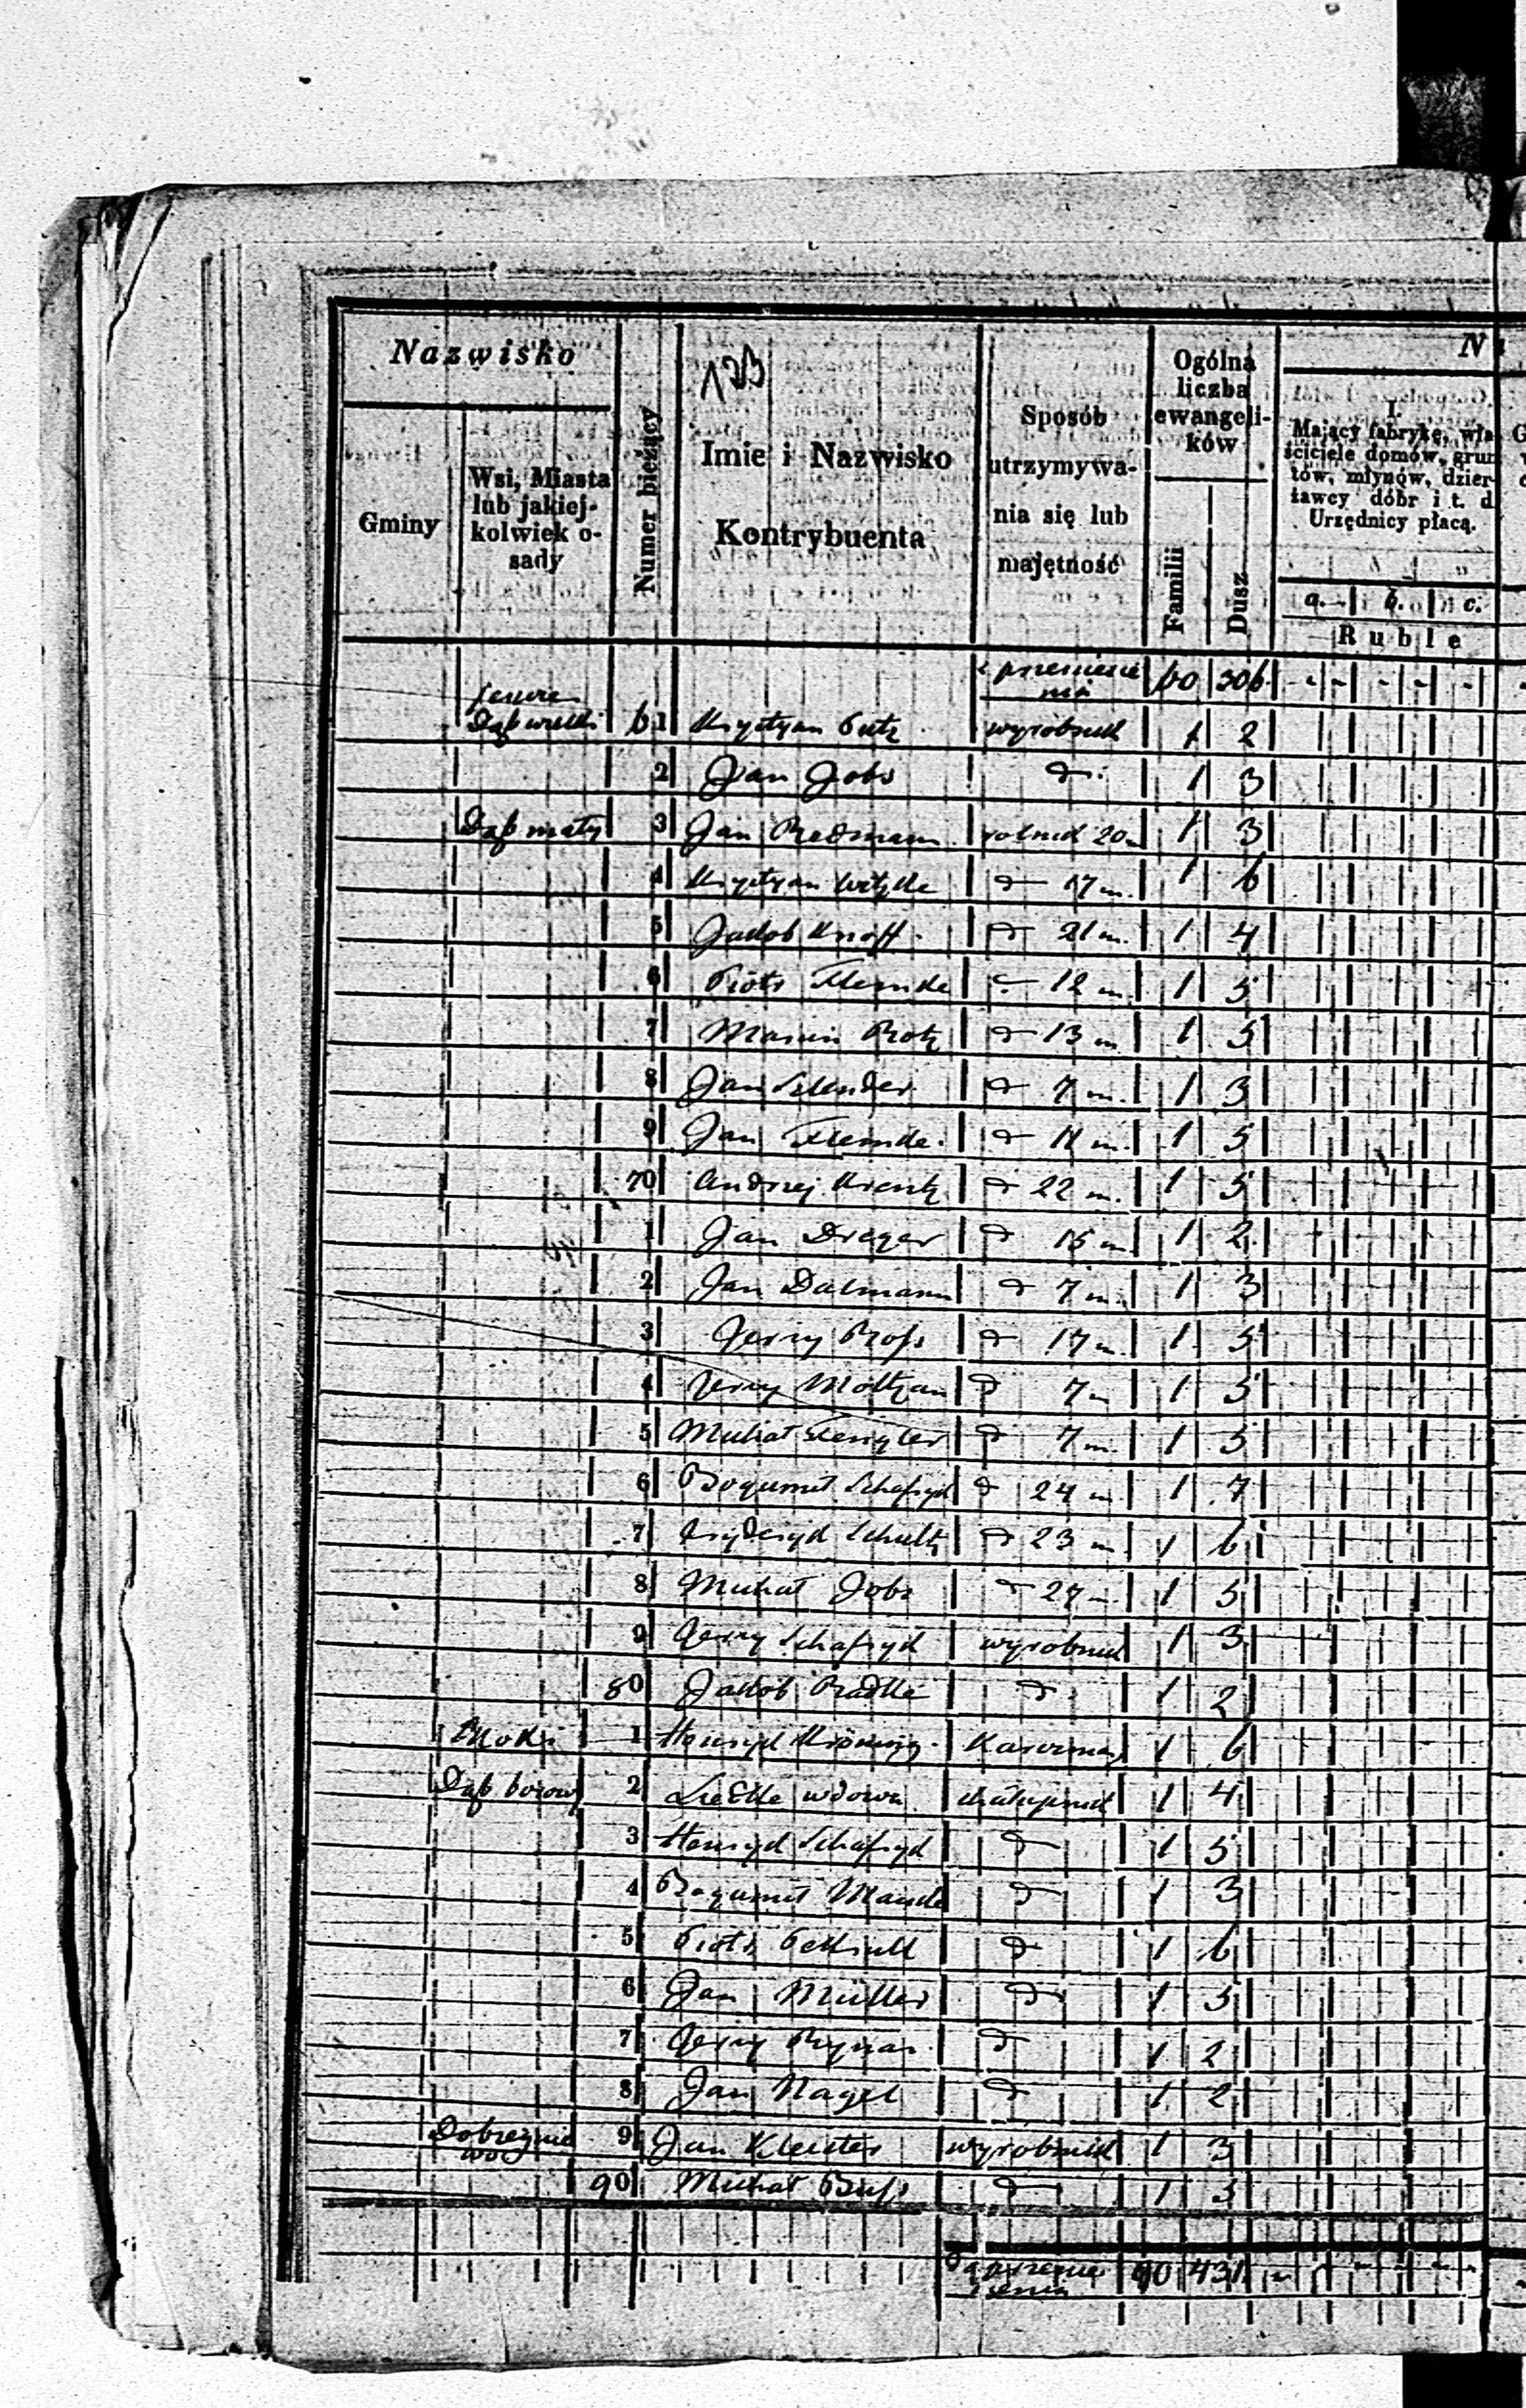 Nazwisko
Gminy
Wsi, Miasta
lub jakiej-
kolwiek o-
sady
Numer bieżący
123
Imie i Nazwisko
Kontrybuenta
Sposób
utrzymywa-
nia się lub
majętność
Ogólna
liczba
ewangeli-
ków
Familii
Dusz
N
I.
Mający fabrykę, wła-
ściciele domów, grun
tów, młynów, dzier-
żawcy dóbr i t. d
Urzędnicy płacą.
a. b. c.
Ruble
z przeniesie
nia 60 306
Dąb wielki 61 Krystyan Putz wyrobnik 1 2
2 Jan Jobs d 1 3
Dąb mały 3 Jan Redmann rolnik 20 m 1 3
4 Krystyan Witzke d 17 m. 1 6
5 Jakob Knoff d 21 m. 1 4
6 Piotr Klemde 12 m. 1 5
7 Marcin Rotz d 13 m 1 5
8 Jan d 7 m. 1 3
9 Jan Klemde d m. 1 5
70 Andrzej Krentz d 22 m. 1 5
1 Jan Dreger d 15 m 1 2
2 Jan Dalmann d 7 m. 1 3
3 Jerzy Ross d 17 m. 1 5
4 Jerzy Moltzan d 7 m 1 5
5 Michał d 7 m. 1 5
6 Bogumił Schafryd d 24 m 1 7
7 Frydryd Schultz d 23 m 1 6
8 Michał Jobs d 27 m 1 5
9 Jerzy Schafryd wyrobnik 1 3
80 Jakób Radtke d 1 2
1 Henryk Kröning Karczmarz 1 6
Dąb borowy 2 Liedtke wdowa chałupnik 1 4
3 Henryk Schafryd d 1 5
4 Bogumił Manske d 1 3
5 Piotr d 1 6
6 Jan Müller d 1 5
7 Jerzy d 1 2
8 Jan Nagel d 1 2
9 Jan Kleister wyrobnik 1 3
90 Michał Buss d 1 3
Do przenie
sienia 90 431